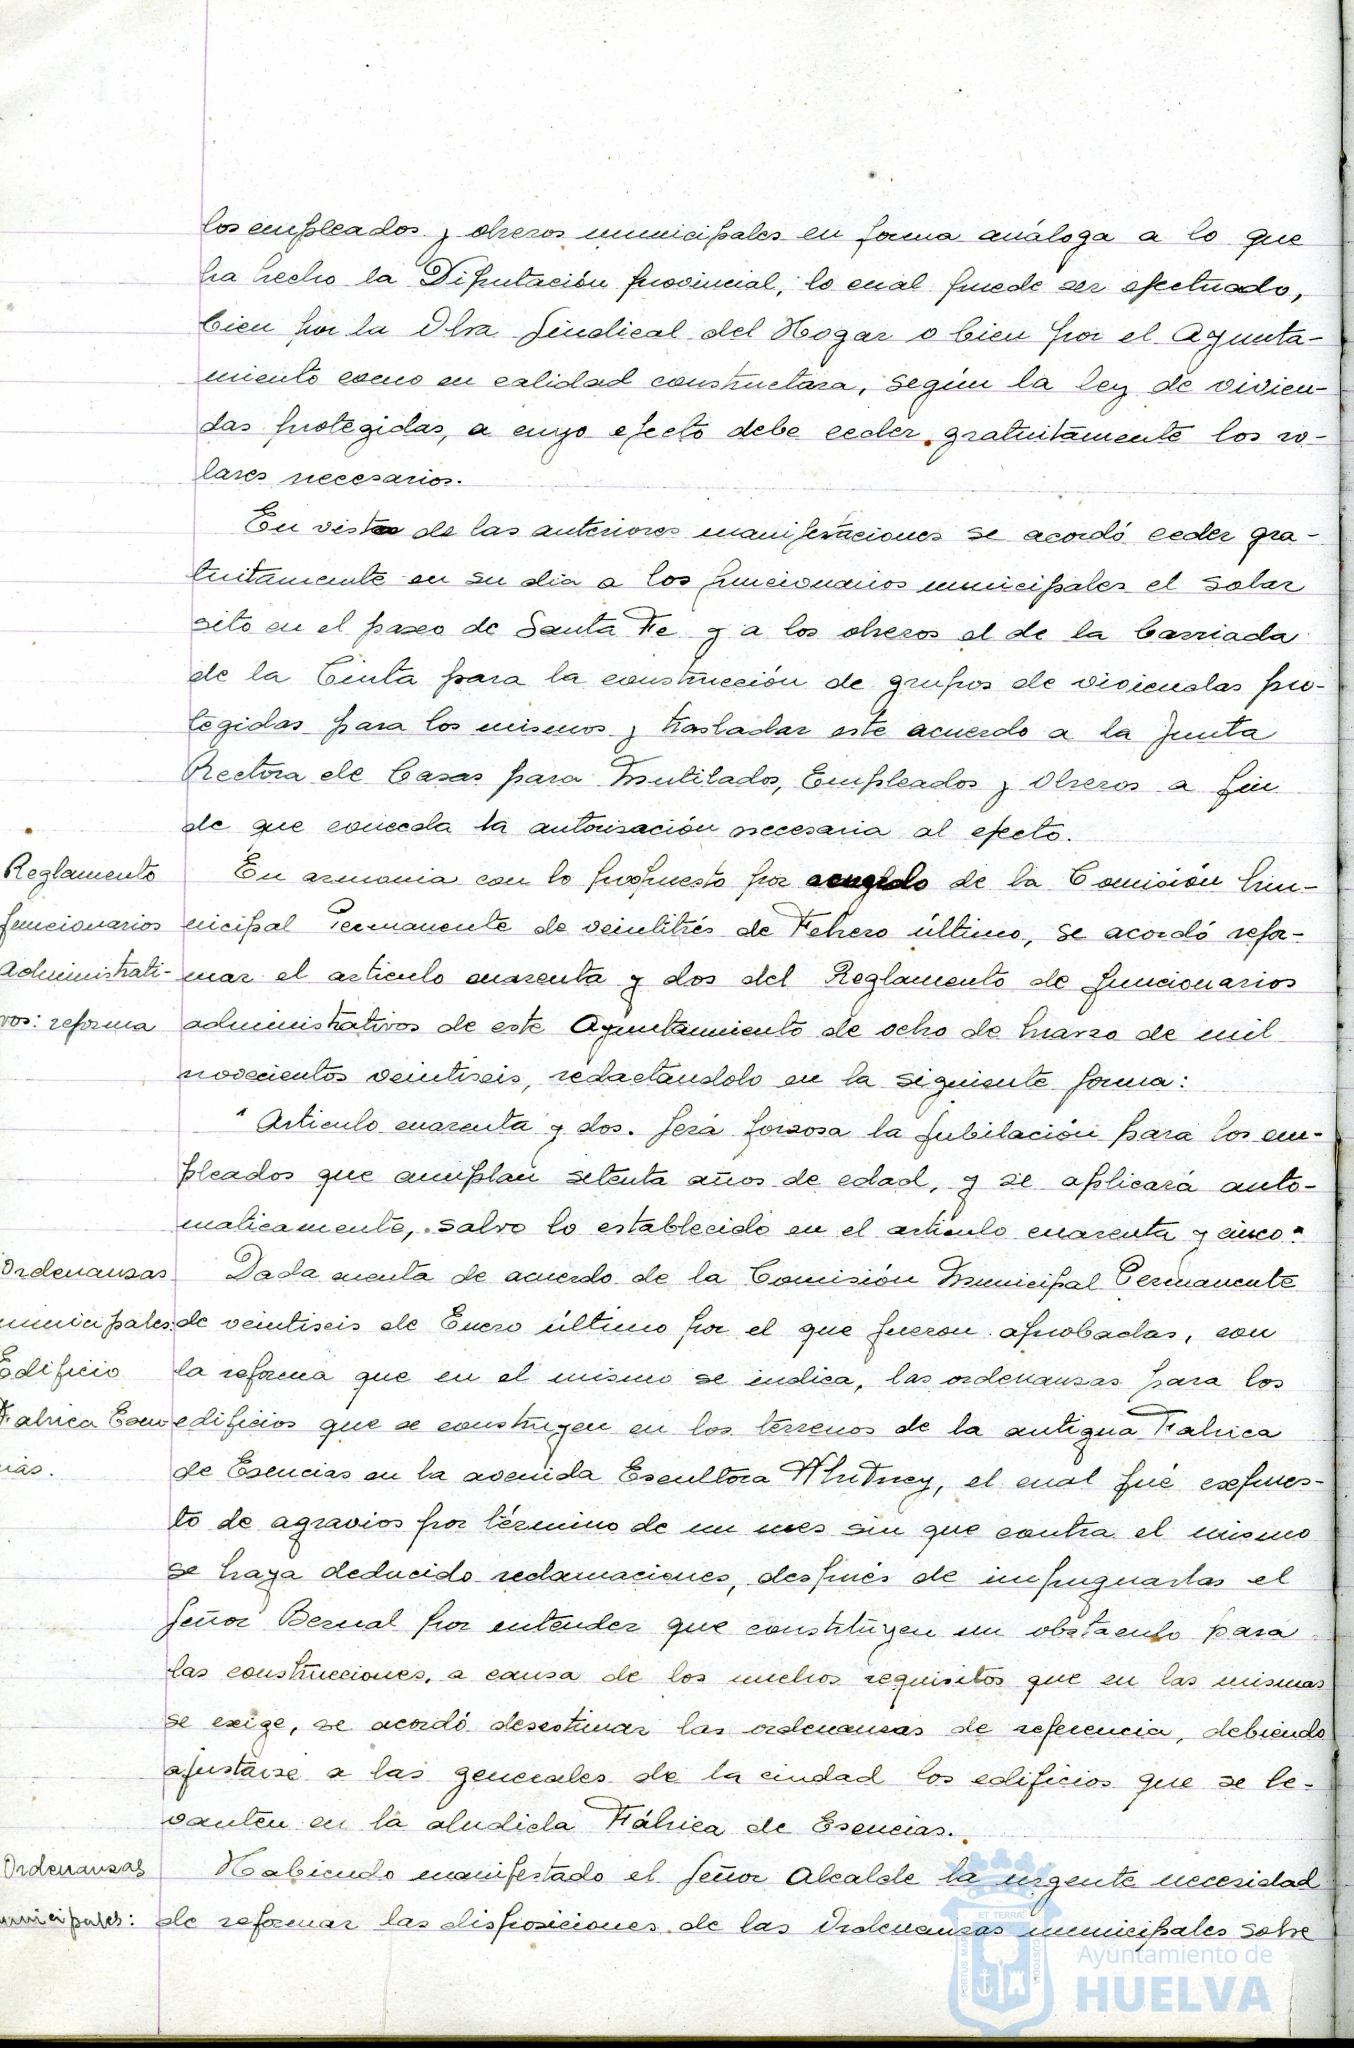 los empleados y obreros municipales en forma análoga a lo que
ha hecho la Diputación provincial, lo cual puede ser efectuado,
bien por la Obra Sindical del Hogar o bien por el Ayunta-
miento como en calidad constructora, según la ley de vivien-
das protegidas, a cuyo efecto debe ceder gratuitamente los so-
lares necesarios.
En vista de las anteriores manifestaciones se acordó ceder gra-
tuitamente en su dia a los funcionarios municipales el solar
sito en el paseo de Santa Fe y a los obreros el de la barriada
de la Cinta para la construcción de grupos de viviendas pro-
tegidas para los mismos y trasladar este acuerdo a la Junta
Rectora de Casas para Mutilados, Empleados y Obreros a fin
de que conceda la autorisación necesaria al efecto.
Reglamento
funcionarios
administrati-
vos: reforma
En armonia con lo propuesto por acuerdo de la Comisión Mu-
nicipal Permanente de veintitrés de Febrero último, se acordó refor-
mar el articulo cuarenta y dos del Reglamento de funcionarios
administrativos de este Ayuntamiento de ocho de Marzo de mil
novecientos veintiseis, redactandolo en la siguiente forma:
"Articulo cuarenta y dos. Será forzosa la jubilación para los em-
pleados que cumplan setenta años de edad, y se aplicará auto-
maticamente, salvo lo establecido en el articulo cuarenta y cinco."
Ordenansas
municipales:
Edificio
Fabrica Esen-
cias.
Dada cuenta de acuerdo de la Comisión Municipal Permanente
de veintiseis de Enero último por el que fueron aprobadas, con
la reforma que en el mismo se indica, las ordenansas para los
edificios que se construyen en los terrenos de la antigua Fabrica
de Esencias en la avenida Escultora Whitney, el cual fué expues-
to de agravios por término de un mes sin que contra el mismo
se haya deducido reclamaciones, después de impugnarlas el
Señor Bernal por entender que constituyen un obstaculo para
las construcciones, a causa de los muchos requisitos que en las mismas
se exige, se acordó desestimar las ordenansas de referencia, debiendo
ajustarse a las generales de la ciudad los edificios que se le-
vanten en la aludida Fábrica de Esencias.
Ordenansas
municipales:
Habiendo manifestado el Señor Alcalde la urgente necesidad
de reformar las disposiciones de las Ordenansas municipales sobre
PORTUS MARIS ET TERRAE CUSTODIA
Ayuntamiento de
HUELVA